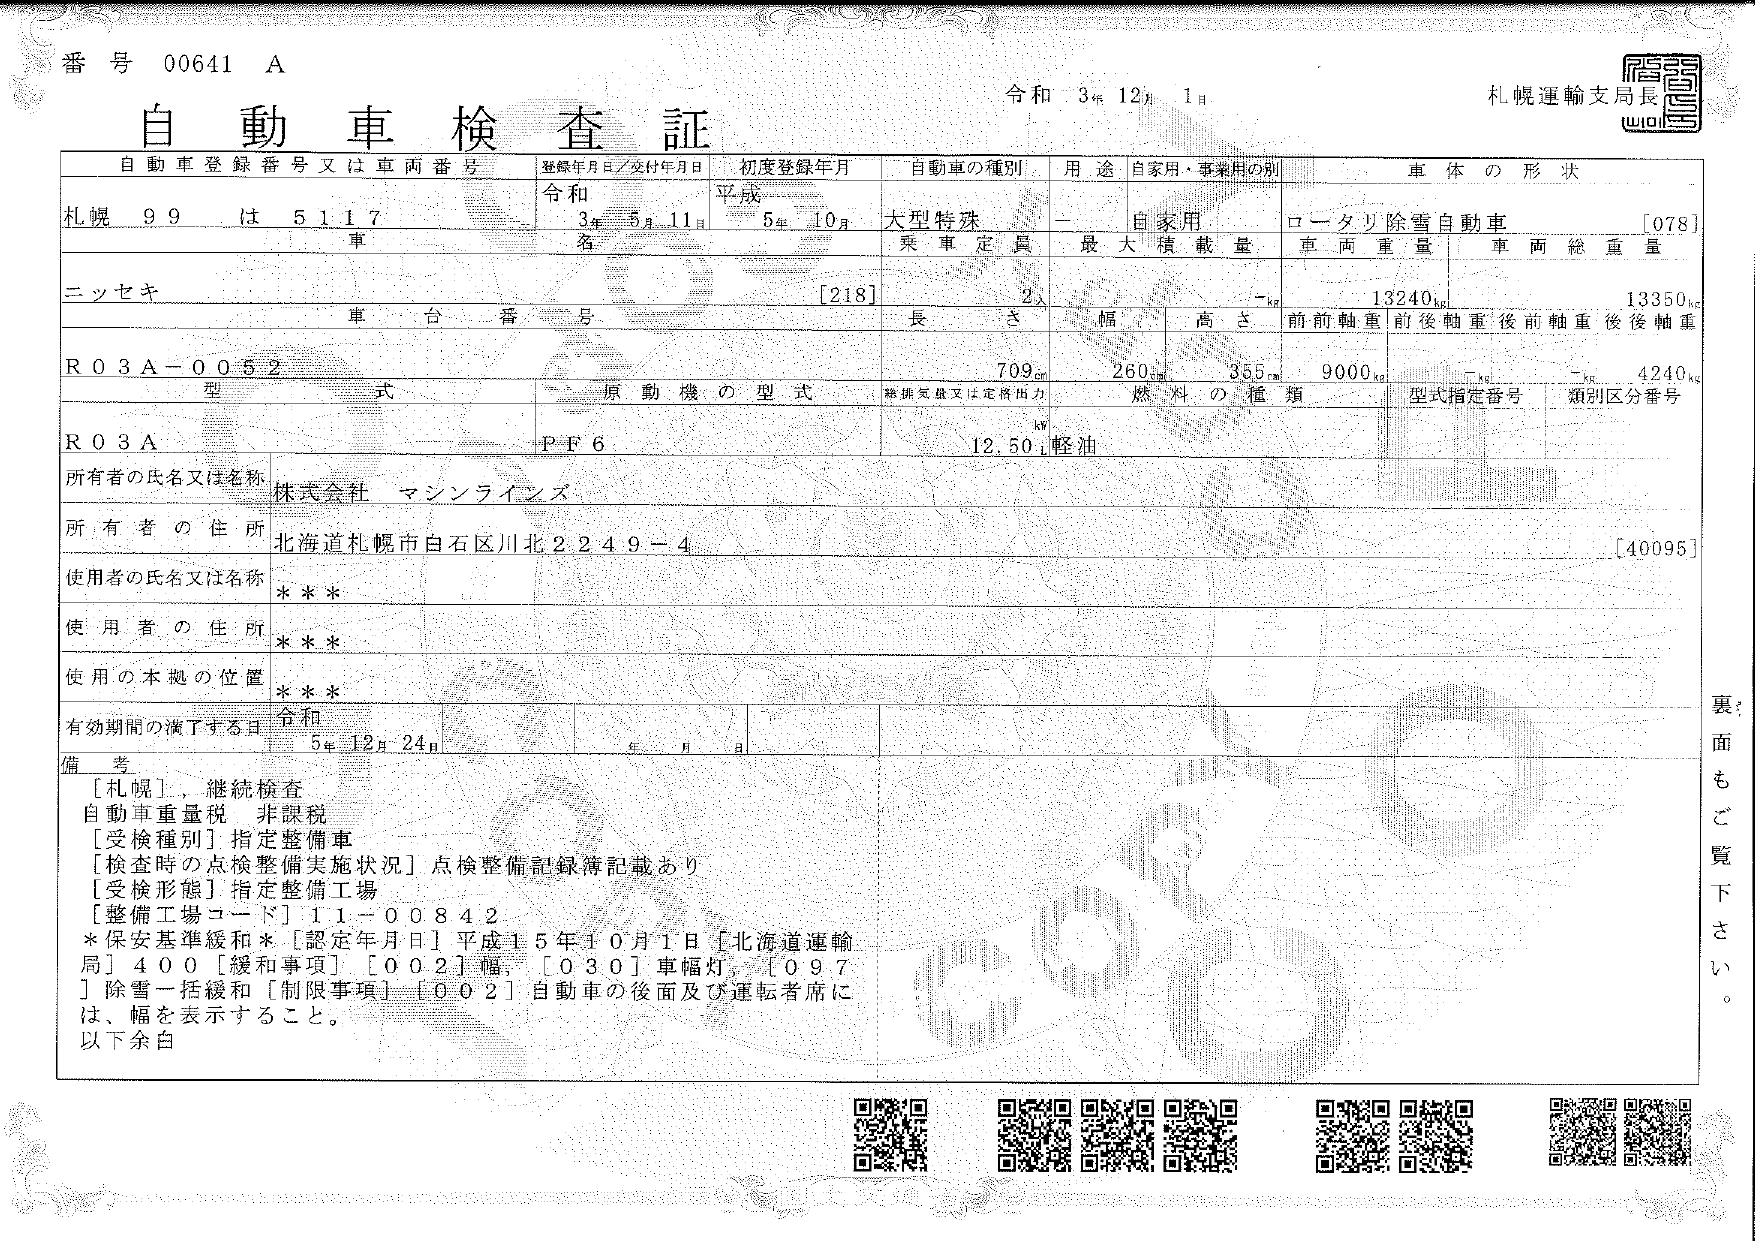 番号 00641 A
令和 3年 12月 1日
札幌運輸支局長
自動車検査証
自動車登録番号又は車両番号 登録年月日／交付年月日 初度登録年月 自動車の種別 用途 自家用・事業用の別 車体の形状
令和 平成
札幌 ９９ は ５１１７ 3年 5月 11日 5年 10月 大型特殊 － 自家用 ロータリ除雪自動車 [078]
車名 乗車定員 最大積載量 車両重量 車両総重量
ニッセキ [218] 2人 －kg 13240kg 13350kg
車台番号 長さ 幅 高さ 前前軸重 前後軸重 後前軸重 後後軸重
Ｒ０３Ａ－００５２ 709cm 260cm 355cm 9000kg －kg －kg 4240kg
型式 原動機の型式 総排気量又は定格出力 燃料の種類 型式指定番号 類別区分番号
kW
Ｒ０３Ａ ＰＦ６ 12.50L 軽油
所有者の氏名又は名称 株式会社 マシンラインズ
所有者の住所 北海道札幌市白石区川北２２４９－４ [40095]
使用者の氏名又は名称 ＊＊＊
使用者の住所 ＊＊＊
使用の本拠の位置 ＊＊＊
有効期間の満了する日 令和
5年 12月 24日 年 月 日
備考
［札幌］，継続検査
自動車重量税 非課税
［受検種別］指定整備車
［検査時の点検整備実施状況］点検整備記録簿記載あり
［受検形態］指定整備工場
［整備工場コード］１１－００８４２
＊保安基準緩和＊［認定年月日］平成１５年１０月１日［北海道運輸
局］４００［緩和事項］［００２］幅，［０３０］車幅灯，［０９７
］除雪一括緩和［制限事項］［００２］自動車の後面及び運転者席に
は、幅を表示すること。
以下余白
裏面もご覧下さい。